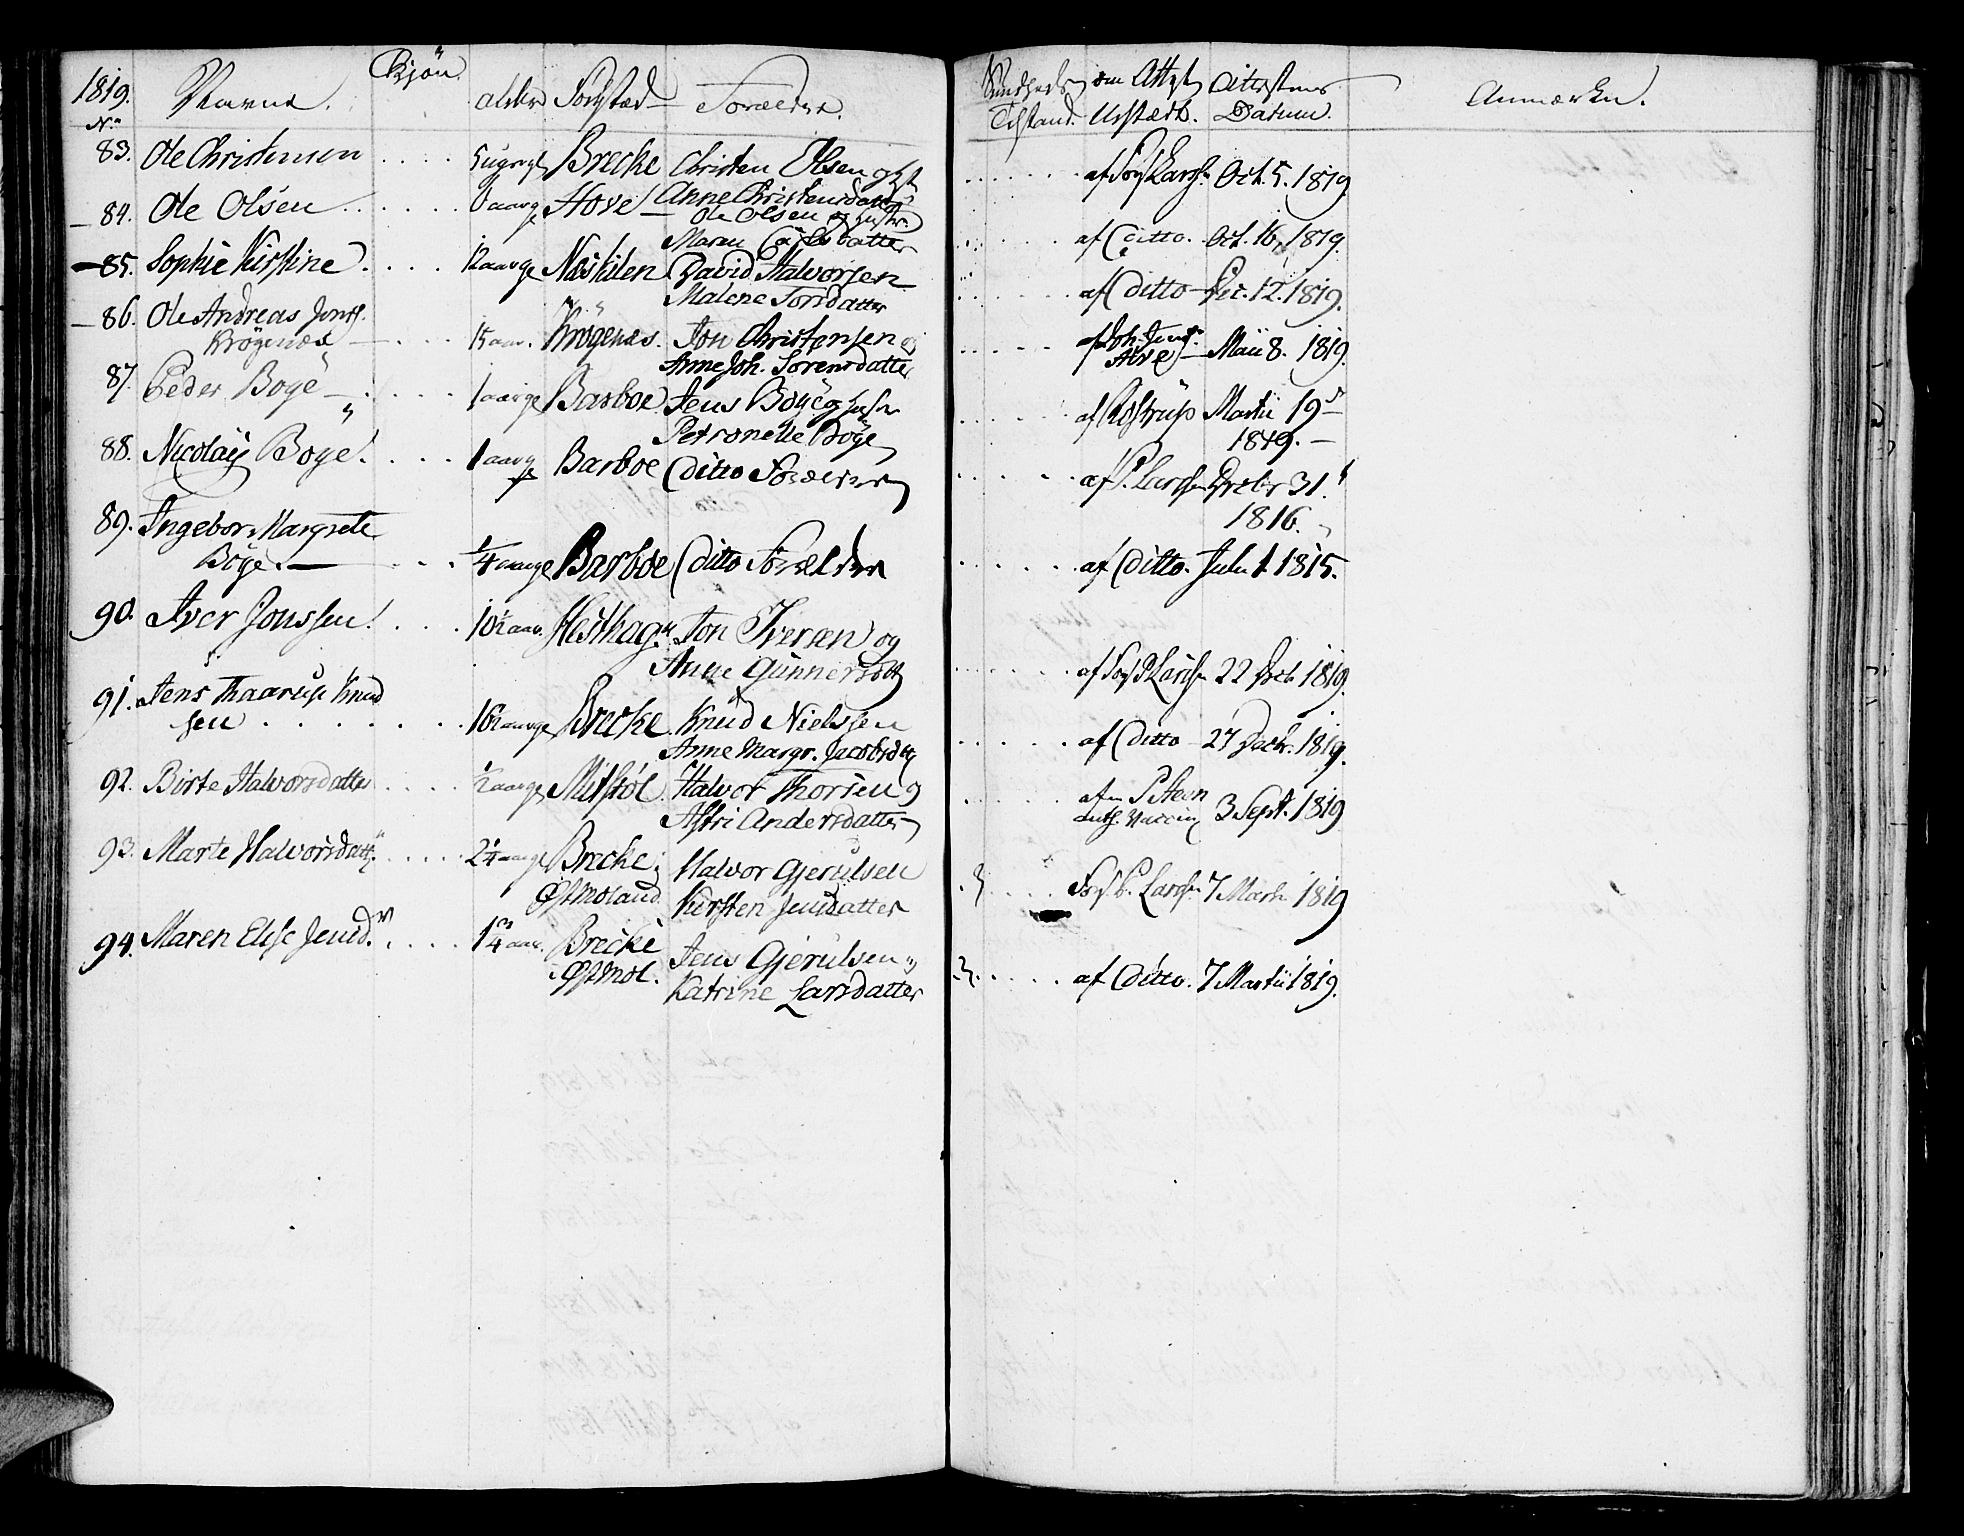 1819. Navne. Kjön. alder Föested Forældre. Sundheds Tilstand. om Attest Udstædt. Attestens Datum. Anmærkn.
No
83. Ole Christensen 5 uger gl Brecke Christen Olsen og
Anne Christensdatter af Larsen Oct. 5. 1819
84. Ole Olsen aarge Hove Ole Olsen og hustr
Maren datter af Ditto. Oct. 16, 1819.
85. Sophie Kirstine 12 aarge Neskilen David Halvorsen
Malene Torsdatter af Ditto Dec. 12. 1819.
86. Ole Andreas Jons.
Krögenæs 15 aar. Krögenæs. Jon Christensen og
Anne Joh. Sorensdatter af Joh. Jens. Alve Maii 8. 1819.
87. Peder Boye 1 aarge Barboe Jens Boye og
Petronelle Boye af Rostrup Martii 19
1819.
88. Nicolay Boye. 1 aarge Barboe Ditto Forældre af P. Larsen 31.
1816.
89. Ingebor Margrete
Boye. 1/4 aarge Barboe Ditto Forældre af Ditto. Juli 1. 1815.
90. Iver Jonssen. 10 1/2 aar. Hesthag. Jon Iversen og
Anne Gunnersdtt af P Larsen 22 1819.
91. Jens Thaarup Knud
sen 16 1/2 aarge Brecke Knud Nielssen
Anne Margr. Jacobsdtt af Ditto 27 Decbr. 1819.
92. Birte Halvorsdatter 1/2 aarge Mitstöl. Halvor Thorsen og
Astri Andersdatter af P Steen
auth. Vaccin 3 Sept. 1819
93. Marte Halvorsdatt. 2 1/4 aarge Brecke
Østmoland Halvor Gjerulsen
Kirsten Jensdatter P. Larsen 7 Marti 1819
94. Maren Elise Jensd. 1 3/4 aar. Brecke
Østmol. Jens Gjerulsen og
Katrine Larsdatter af Ditto. 7 Martii 1819.